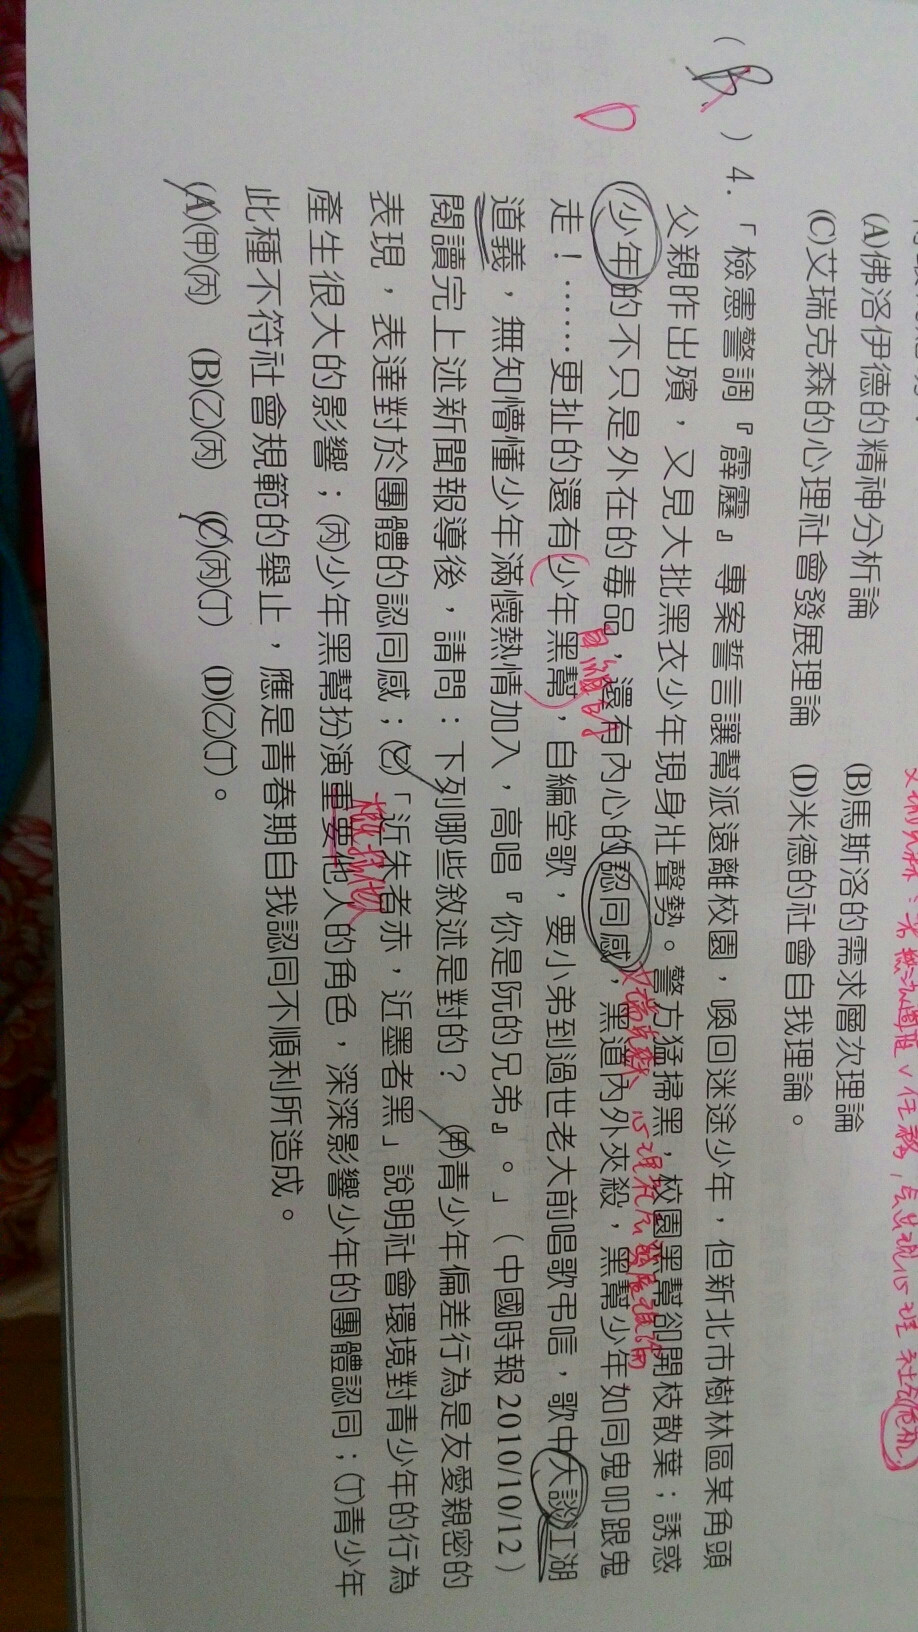 (A)佛洛伊德的精神分析論 (B)馬斯洛的需求層次理論
(C)艾瑞克森的心理社會發展理論 (D)米德的社會自我理論。
( B ) 4. 「檢憲警調『霹靂』專案誓言讓幫派遠離校園，喚回迷途少年，但新北市樹林區某角頭
D
父親昨出殯，又見大批黑衣少年現身壯聲勢。警方猛掃黑，校園黑幫卻開枝散葉；誘惑
少年的不只是外在的毒品，還有內心的認同感，黑道內外夾殺，黑幫少年如同鬼叩跟鬼
走！……更扯的還有少年黑幫，自編堂歌，要小弟到過世老大前唱歌弔唁，歌中大談江湖
道義，無知懵懂少年滿懷熱情加入，高唱『你是阮的兄弟』。」（中國時報 2010/10/12）
閱讀完上述新聞報導後，請問：下列哪些敘述是對的？ (甲)青少年偏差行為是友愛親密的
表現，表達對於團體的認同感；(乙)「近朱者赤，近墨者黑」說明社會環境對青少年的行為
產生很大的影響；(丙)少年黑幫扮演重要他人的角色，深深影響少年的團體認同；(丁)青少年
此種不符社會規範的舉止，應是青春期自我認同不順利所造成。
(A)(甲)(丙) (B)(乙)(丙) (C)(丙)(丁) (D)(乙)(丁)。